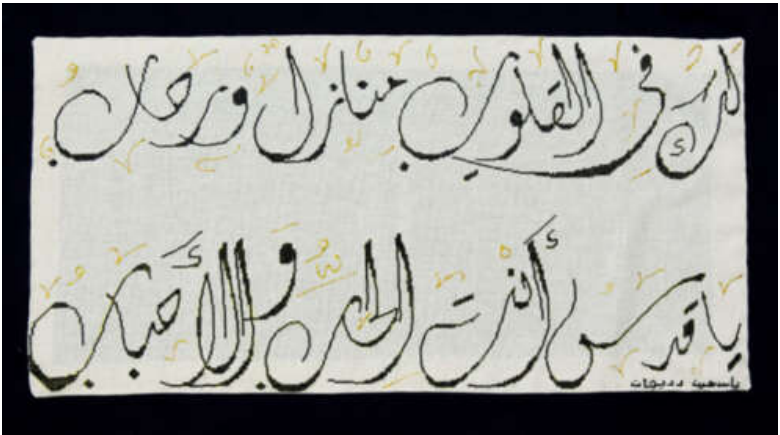 لك في القلوب منازل ورحاب
يا قدس أنت الحب والأحباب
ياسمين